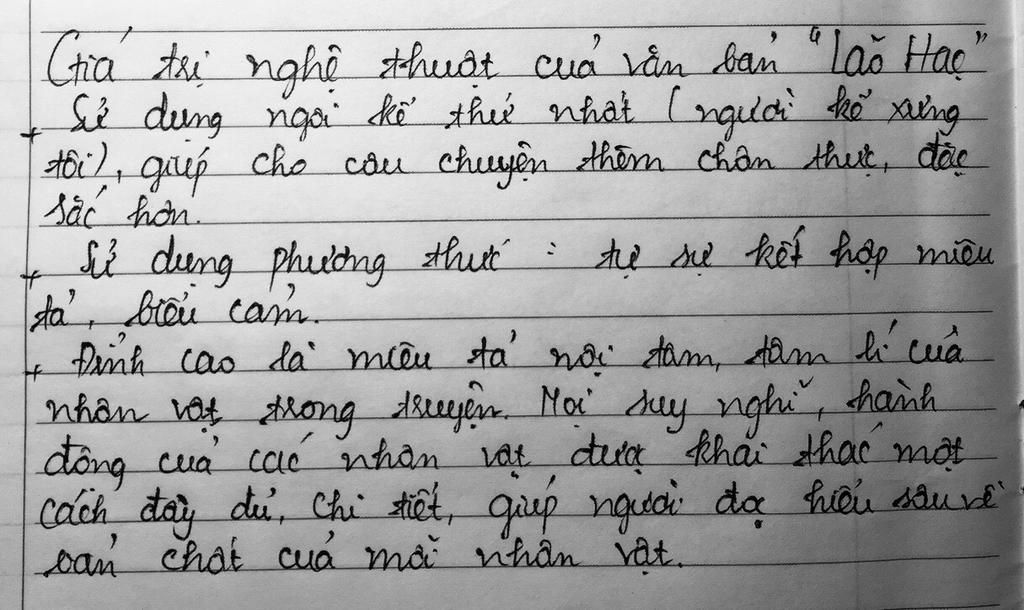 Giá trị nghệ thuật của văn bản "Lão Hạc"
+ Sử dụng ngôi kể thứ nhất (người kể xưng
tôi), giúp cho câu chuyện thêm chân thực, đặc
sắc hơn.
+ Sử dụng phương thức : tự sự kết hợp miêu
tả, biểu cảm.
+ Đỉnh cao là miêu tả nội tâm, tâm lí của
nhân vật trong truyện. Mọi suy nghĩ, hành
động của các nhân vật được khai thác một
cách đầy đủ, chi tiết, giúp người đọc hiểu sâu về
bản chất của mỗi nhân vật.